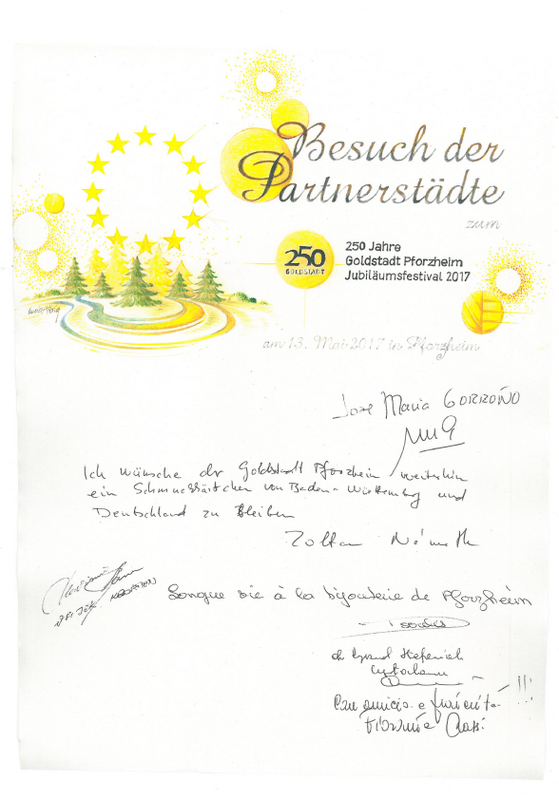 Besuch der
Partnerstädte
zum
250
GOLDSTADT
250 Jahre
Goldstadt Pforzheim
Jubiläumsfestival 2017
am 13. Mai 2017 in Pforzheim
Jose Maria GORROÑO
Ich wünsche der Goldstadt Pforzheim weiterhin
ein Schmuckkästchen von Baden-Württemberg und
Deutschland zu bleiben
Zoltan Németh
Longue vie à la bijouterie de Pforzheim
Con amicizia e
!!!